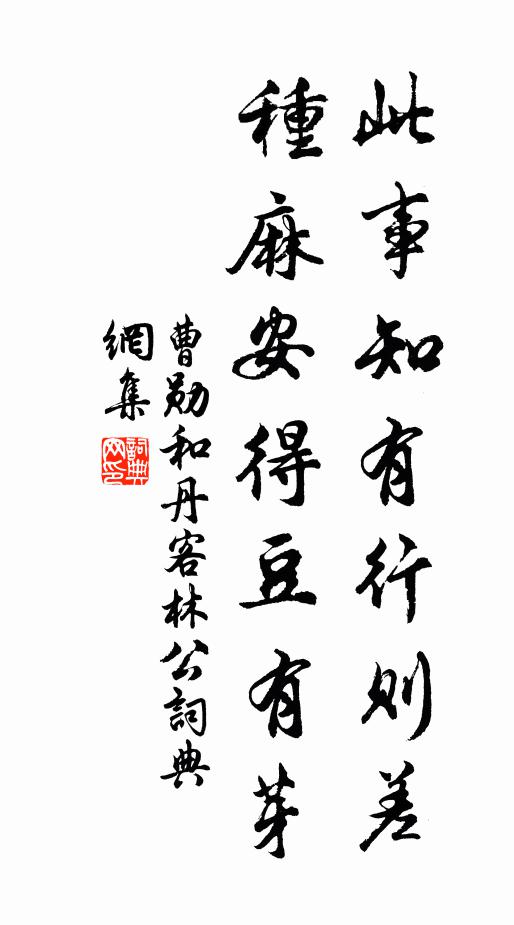 此事知有行则差
種麻安得豆有芽
曹勛和丹客林公詞典
網集
詞典网印